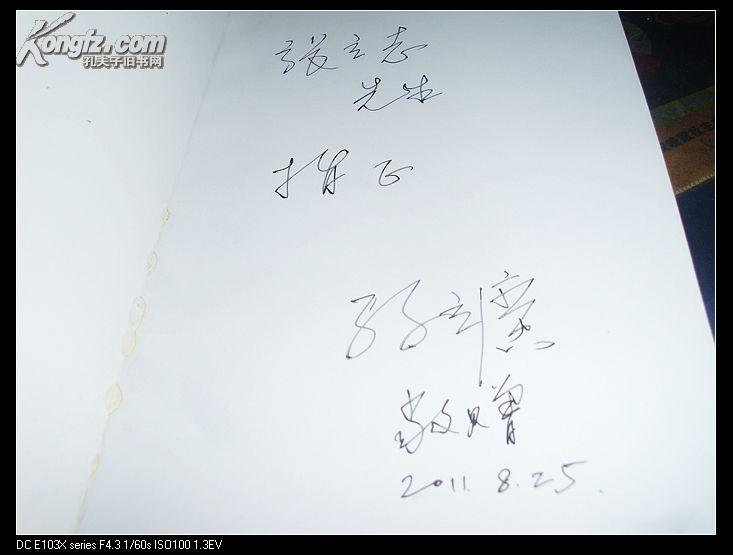 Kongfz.com
孔夫子旧书网
张立志
先生
指正
敬赠
2011.8.25.
DC E103X series F4.3 1/60s ISO100 1.3EV